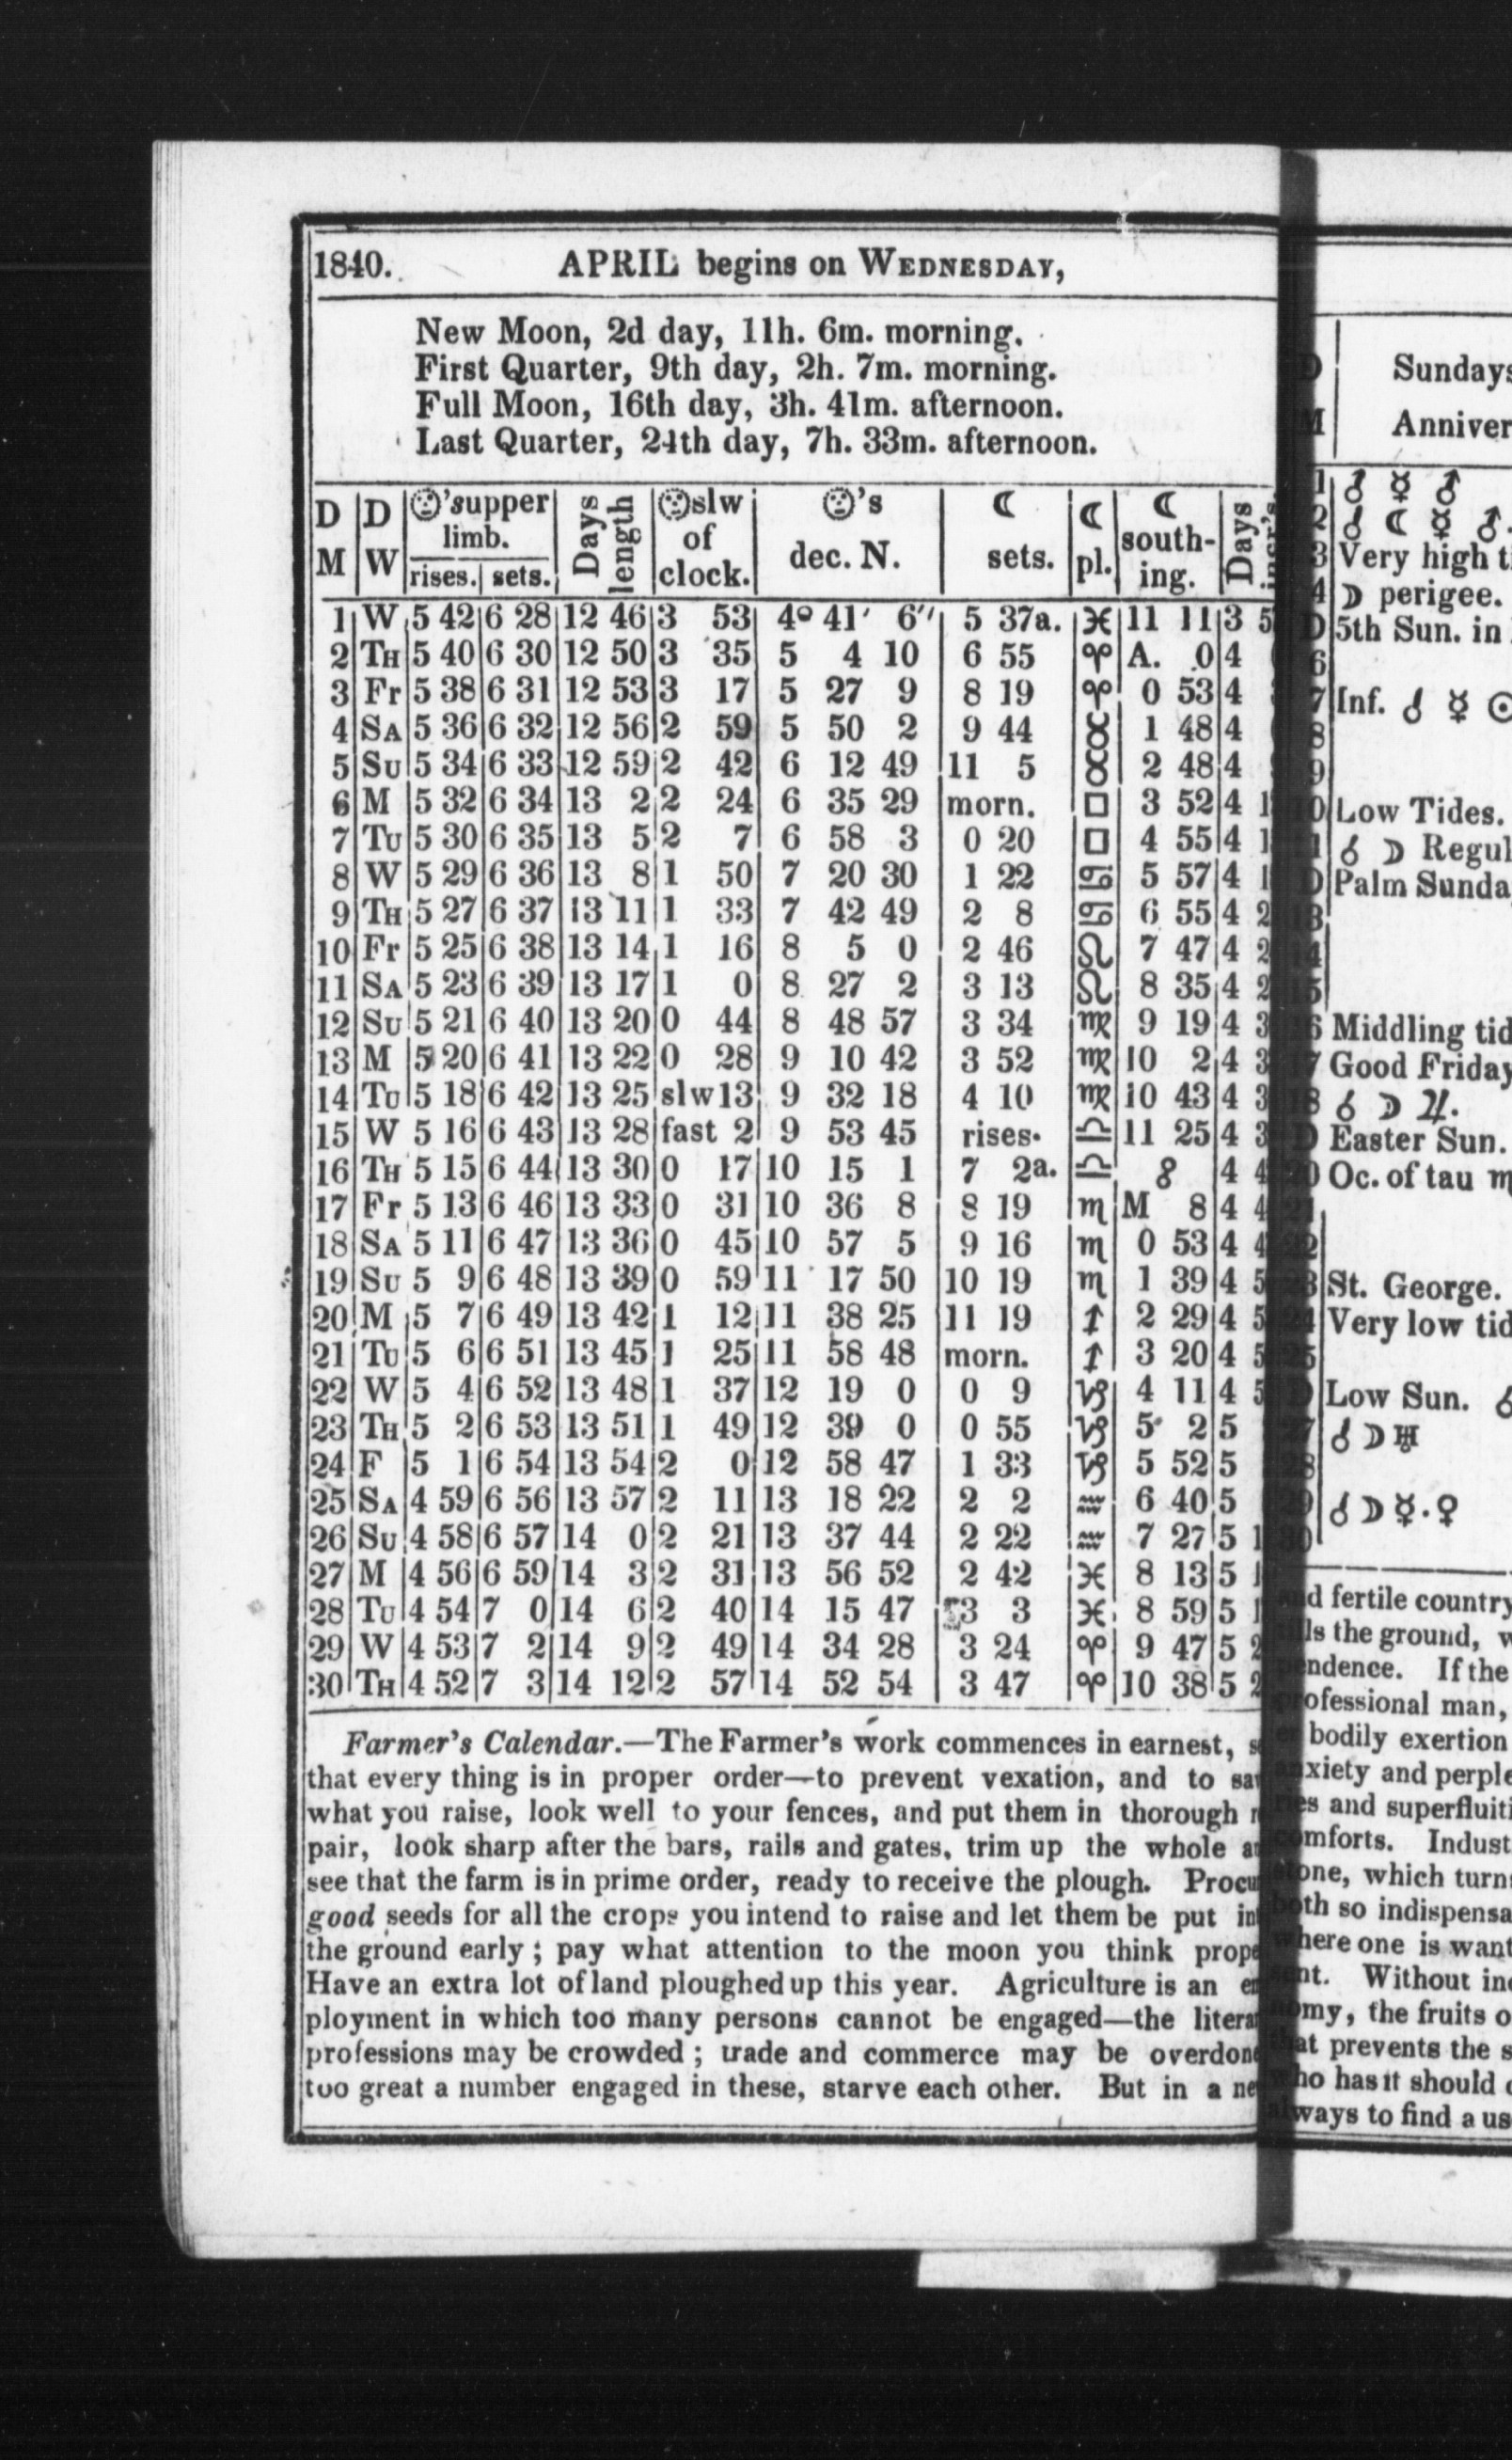 1840. APRIL begins on WEDNESDAY,
New Moon, 2d day, 11h. 6m. morning.
First Quarter, 9th day, 2h. 7m. morning.
Full Moon, 16th day, 3h. 41m. afternoon.
Last Quarter, 24th day, 7h. 33m. afternoon.
D D ☉'s upper Days ☉ slw ☉'s ☾ ☾ ☾ Days
M W limb. length of dec. N. sets. pl. south- incr's.
rises. sets. clock. ing.
1 W 5 42 6 28 12 46 3 53 4° 41' 6'' 5 37a. ♓ 11 11 3 5
2 TH 5 40 6 30 12 50 3 35 5 4 10 6 55 ♈ A. 0 4
3 Fr 5 38 6 31 12 53 3 17 5 27 9 8 19 ♈ 0 53 4
4 SA 5 36 6 32 12 56 2 59 5 50 2 9 44 ♉ 1 48 4
5 SU 5 34 6 33 12 59 2 42 6 12 49 11 5 ♉ 2 48 4
6 M 5 32 6 34 13 2 2 24 6 35 29 morn. □ 3 52 4 1
7 TU 5 30 6 35 13 5 2 7 6 58 3 0 20 □ 4 55 4 1
8 W 5 29 6 36 13 8 1 50 7 20 30 1 22 ♋ 5 57 4 1
9 TH 5 27 6 37 13 11 1 33 7 42 49 2 8 ♋ 6 55 4 2
10 Fr 5 25 6 38 13 14 1 16 8 5 0 2 46 ♌ 7 47 4 2
11 SA 5 23 6 39 13 17 1 0 8 27 2 3 13 ♌ 8 35 4 2
12 SU 5 21 6 40 13 20 0 44 8 48 57 3 34 ♍ 9 19 4 3
13 M 5 20 6 41 13 22 0 28 9 10 42 3 52 ♍ 10 2 4 3
14 TU 5 18 6 42 13 25 slw 13 9 32 18 4 10 ♍ 10 43 4 3
15 W 5 16 6 43 13 28 fast 2 9 53 45 rises. ♎ 11 25 4 3
16 TH 5 15 6 44 13 30 0 17 10 15 1 7 2a. ♎ ☍ 4 4
17 Fr 5 13 6 46 13 33 0 31 10 36 8 8 19 ♏ M 8 4 4
18 SA 5 11 6 47 13 36 0 45 10 57 5 9 16 ♏ 0 53 4 4
19 SU 5 9 6 48 13 39 0 59 11 17 50 10 19 ♏ 1 39 4 5
20 M 5 7 6 49 13 42 1 12 11 38 25 11 19 ♐ 2 29 4 5
21 TU 5 6 6 51 13 45 1 25 11 58 48 morn. ♐ 3 20 4 5
22 W 5 4 6 52 13 48 1 37 12 19 0 0 9 ♑ 4 11 4 5
23 TH 5 2 6 53 13 51 1 49 12 39 0 0 55 ♑ 5 2 5
24 F 5 1 6 54 13 54 2 0 12 58 47 1 33 ♑ 5 52 5
25 SA 4 59 6 56 13 57 2 11 13 18 22 2 2 ♒ 6 40 5
26 SU 4 58 6 57 14 0 2 21 13 37 44 2 22 ♒ 7 27 5 1
27 M 4 56 6 59 14 3 2 31 13 56 52 2 42 ♓ 8 13 5 1
28 TU 4 54 7 0 14 6 2 40 14 15 47 3 3 ♓ 8 59 5 1
29 W 4 53 7 2 14 9 2 49 14 34 28 3 24 ♈ 9 47 5 2
30 TH 4 52 7 3 14 12 2 57 14 52 54 3 47 ♈ 10 38 5 2
Farmer's Calendar.—The Farmer's work commences in earnest,
that every thing is in proper order—to prevent vexation, and to sa
what you raise, look well to your fences, and put them in thorough r
pair, look sharp after the bars, rails and gates, trim up the whole a
see that the farm is in prime order, ready to receive the plough. Procu
good seeds for all the crops you intend to raise and let them be put in
the ground early; pay what attention to the moon you think prope
Have an extra lot of land ploughed up this year. Agriculture is an e
ployment in which too many persons cannot be engaged—the litera
professions may be crowded; trade and commerce may be overdon
too great a number engaged in these, starve each other. But in a ne
D Sundays
M Anniver
1 ☌ ☿ ♂
2 ☌ ☾ ☿ ♂.
3 Very high t
4 ☽ perigee.
D 5th Sun. in
6
7 Inf. ☌ ☿ ☉
8
9
10 Low Tides.
11 ☌ ☽ Regul
D Palm Sunda
13
14
15
16 Middling tid
17 Good Friday
18 ☌ ☽ ♃.
D Easter Sun.
20 Oc. of tau m
21
22
23 St. George.
24 Very low tid
25
D Low Sun. ☌
27 ☌ ☽ ♅
28
29 ☌ ☽ ☿. ♀
30
and fertile country
tills the ground, w
pendence. If the
professional man,
er bodily exertion
anxiety and perple
ries and superfluiti
comforts. Indust
stone, which turns
both so indispensa
where one is want
sent. Without ind
nomy, the fruits o
that prevents the s
who has it should
always to find a us